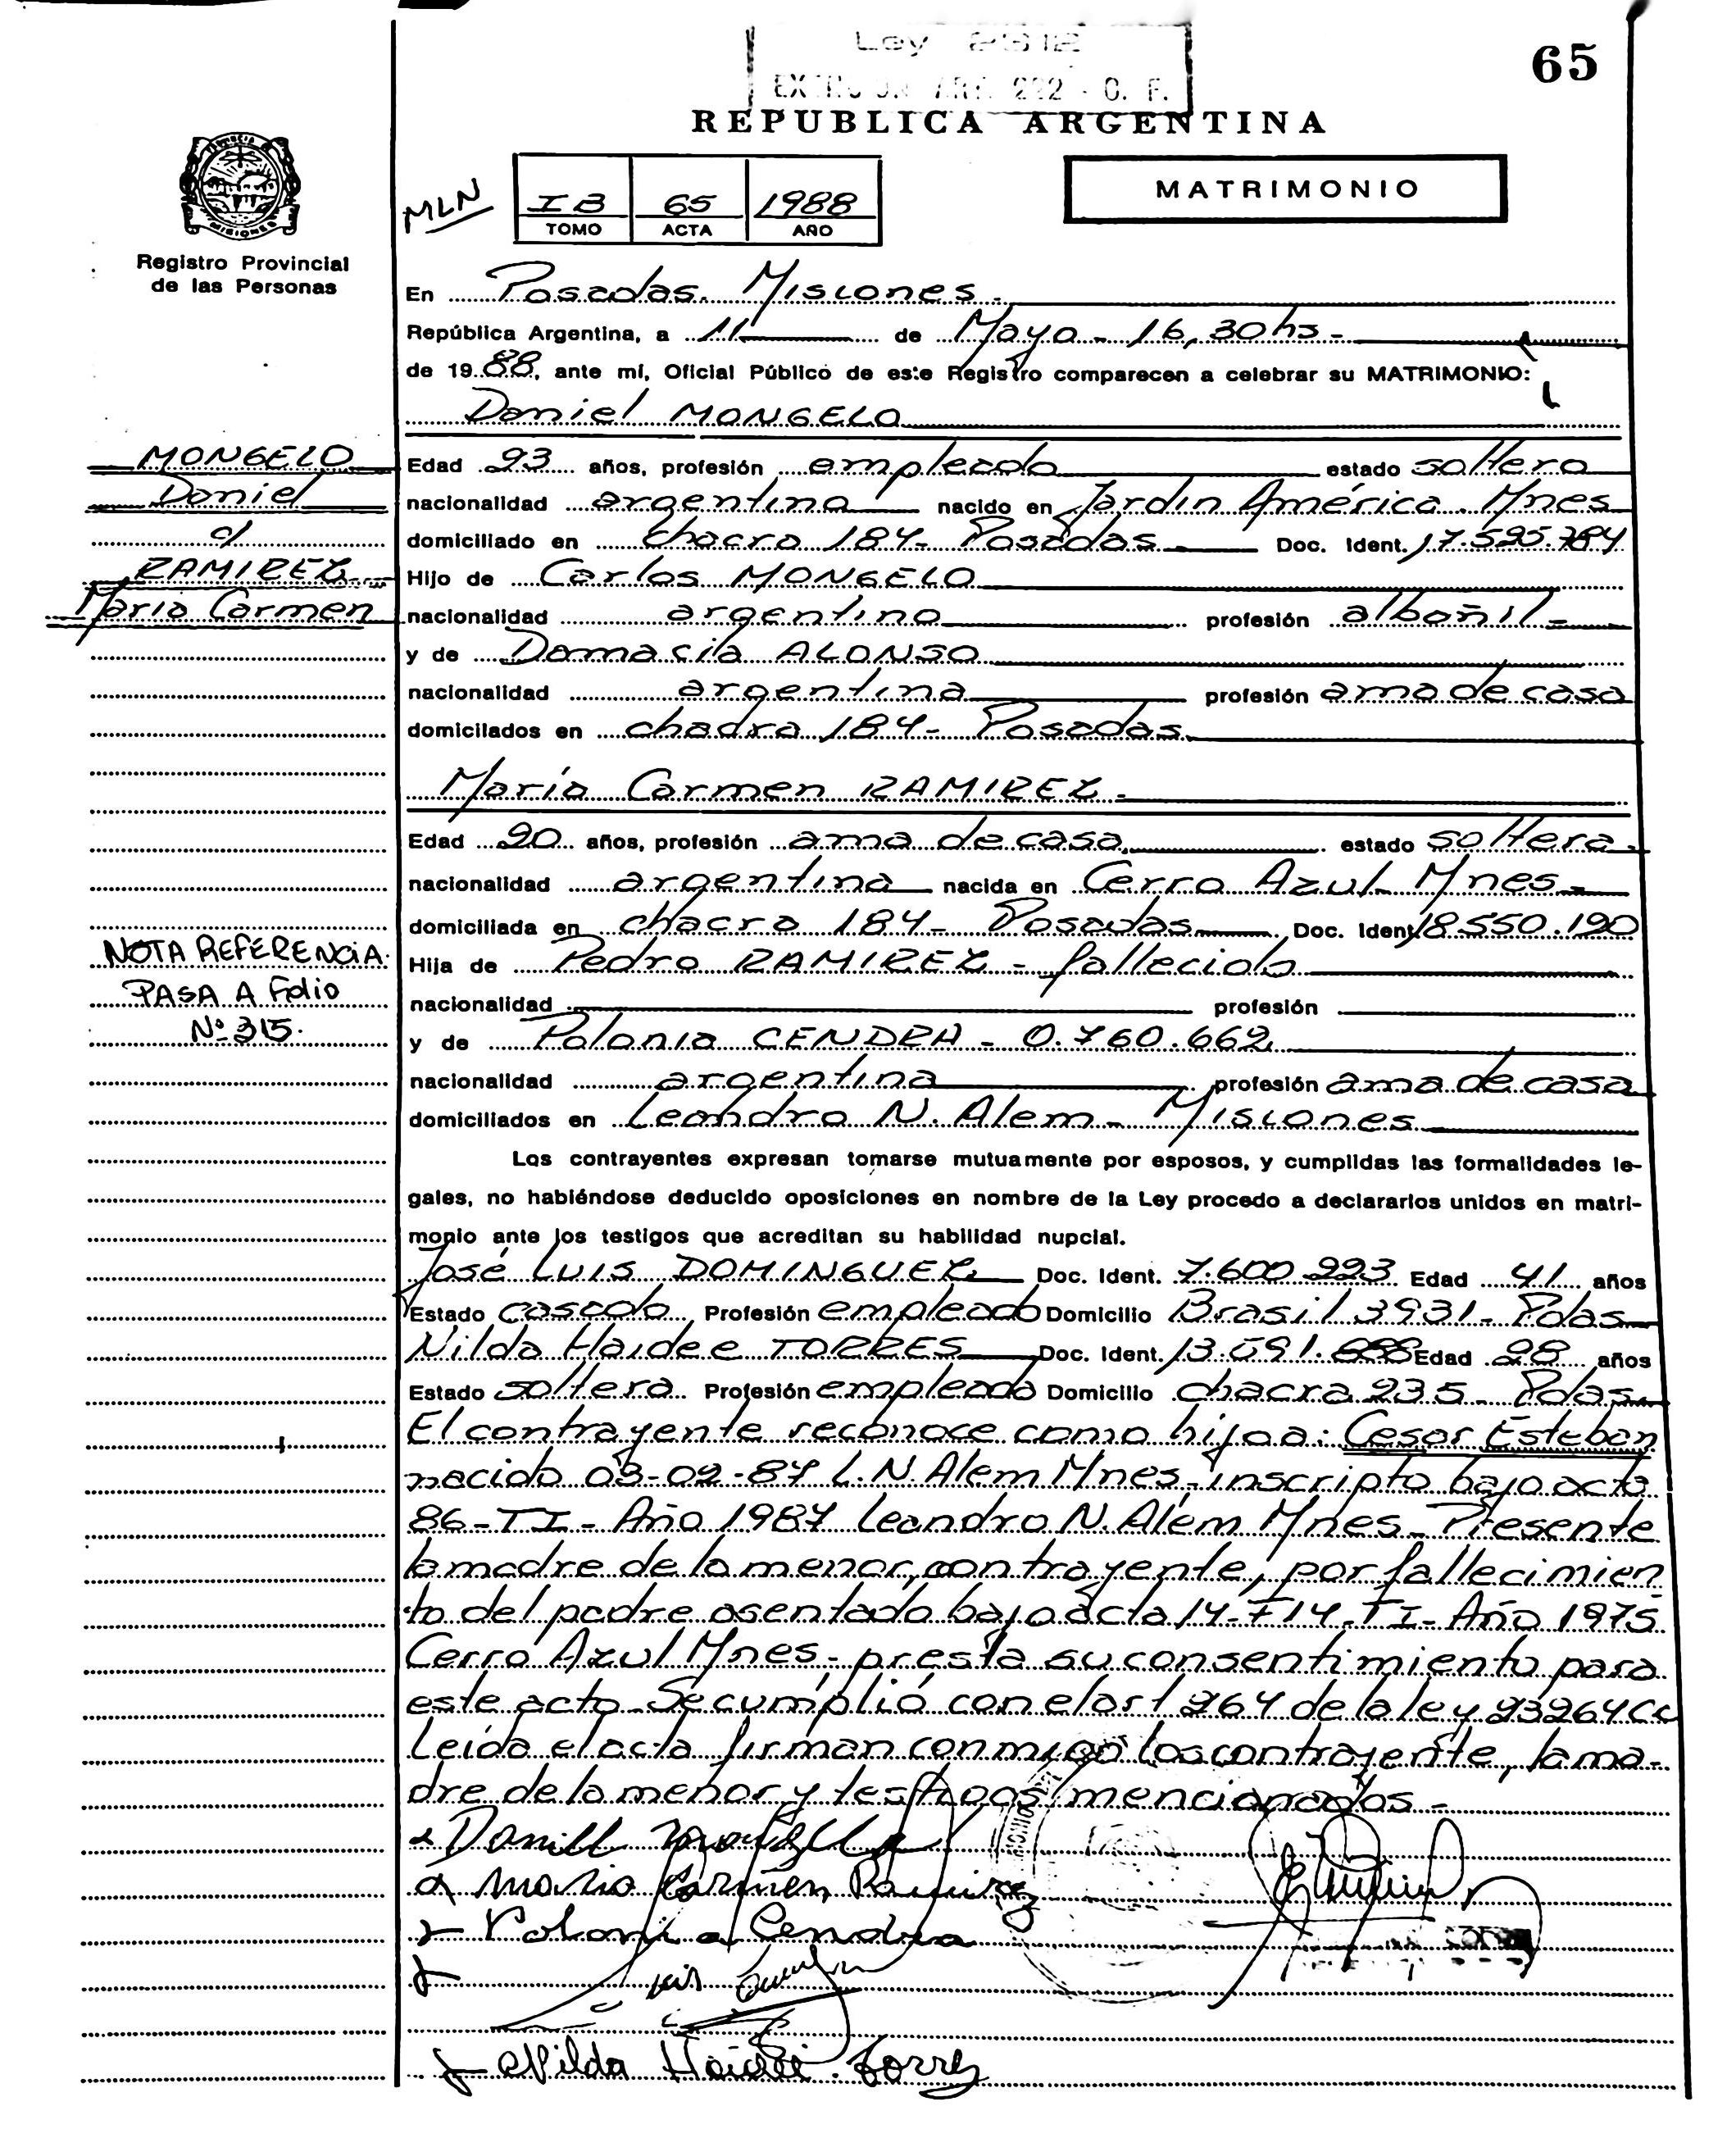 Ley 2612
ART. 222 - C. F.
65
REPUBLICA ARGENTINA
MISIONES
Registro Provincial
de las Personas
MLN
IB 65 1988
TOMO ACTA AÑO
MATRIMONIO
En Posadas. Misiones.
República Argentina, a 11 de Mayo - 16,30hs -
de 1988, ante mí, Oficial Público de este Registro comparecen a celebrar su MATRIMONIO:
Daniel MONGELO
MONGELO
Daniel
c/
RAMIREZ
María Carmen
Edad 23 años, profesión empleado estado soltero
nacionalidad argentino nacido en Jardín América. Mnes
domiciliado en Chacra 184- Posadas Doc. Ident. 17.595.784
Hijo de Carlos MONGELO
nacionalidad argentino profesión albañil -
y de Damacia ALONSO
nacionalidad argentina profesión ama de casa
domicilados en chacra 184- Posadas
María Carmen RAMIREZ -
Edad 20 años, profesión ama de casa estado soltera -
nacionalidad argentina nacida en Cerro Azul Mnes -
domiciliada en chacra 184- Posadas Doc. Ident. 18.550.190
NOTA REFERENCIA.
PASA A Folio
Nº 315.
Hija de Pedro RAMIREZ - fallecido
nacionalidad profesión
y de Polonia CENDRA - 0.760.662
nacionalidad argentina profesión ama de casa
domiciliados en Leandro N. Alem - Misiones
Los contrayentes expresan tomarse mutuamente por esposos, y cumplidas las formalidades le-
gales, no habiéndose deducido oposiciones en nombre de la Ley procedo a declararlos unidos en matri-
monio ante los testigos que acreditan su habilidad nupcial.
José LUIS DOMINGUEZ Doc. Ident. 7.600.223 Edad 41 años
Estado casado Profesión empleado Domicilio Brasil 3931- Pdas
Nilda Haidee TORRES Doc. Ident. 13.091.888 Edad 28 años
Estado soltera Profesión empleada Domicilio chacra 235- Pdas
El contrayente reconoce como hijo a: Cesar Esteban
nacido 03-02-87 L.N. Alem Mnes, inscripto bajo acta
86-TI- Año 1987 Leandro N. Alem Mnes - Presente
la madre de la menor contrayente, por fallecimien
to del padre asentado bajo acta 14-F14-TI- Año 1975
Cerro Azul Mnes - presta su consentimiento para
este acto - Se cumplió con el art 264 de la ley 23264 CC
Leída el acta firman conmigo los contrayente, la ma-
dre de la menor y testigos mencionados -
Daniel Mongelo
Maria Carmen Ramirez
Polonia Cendra
Luis
Nilda Haidee Torres